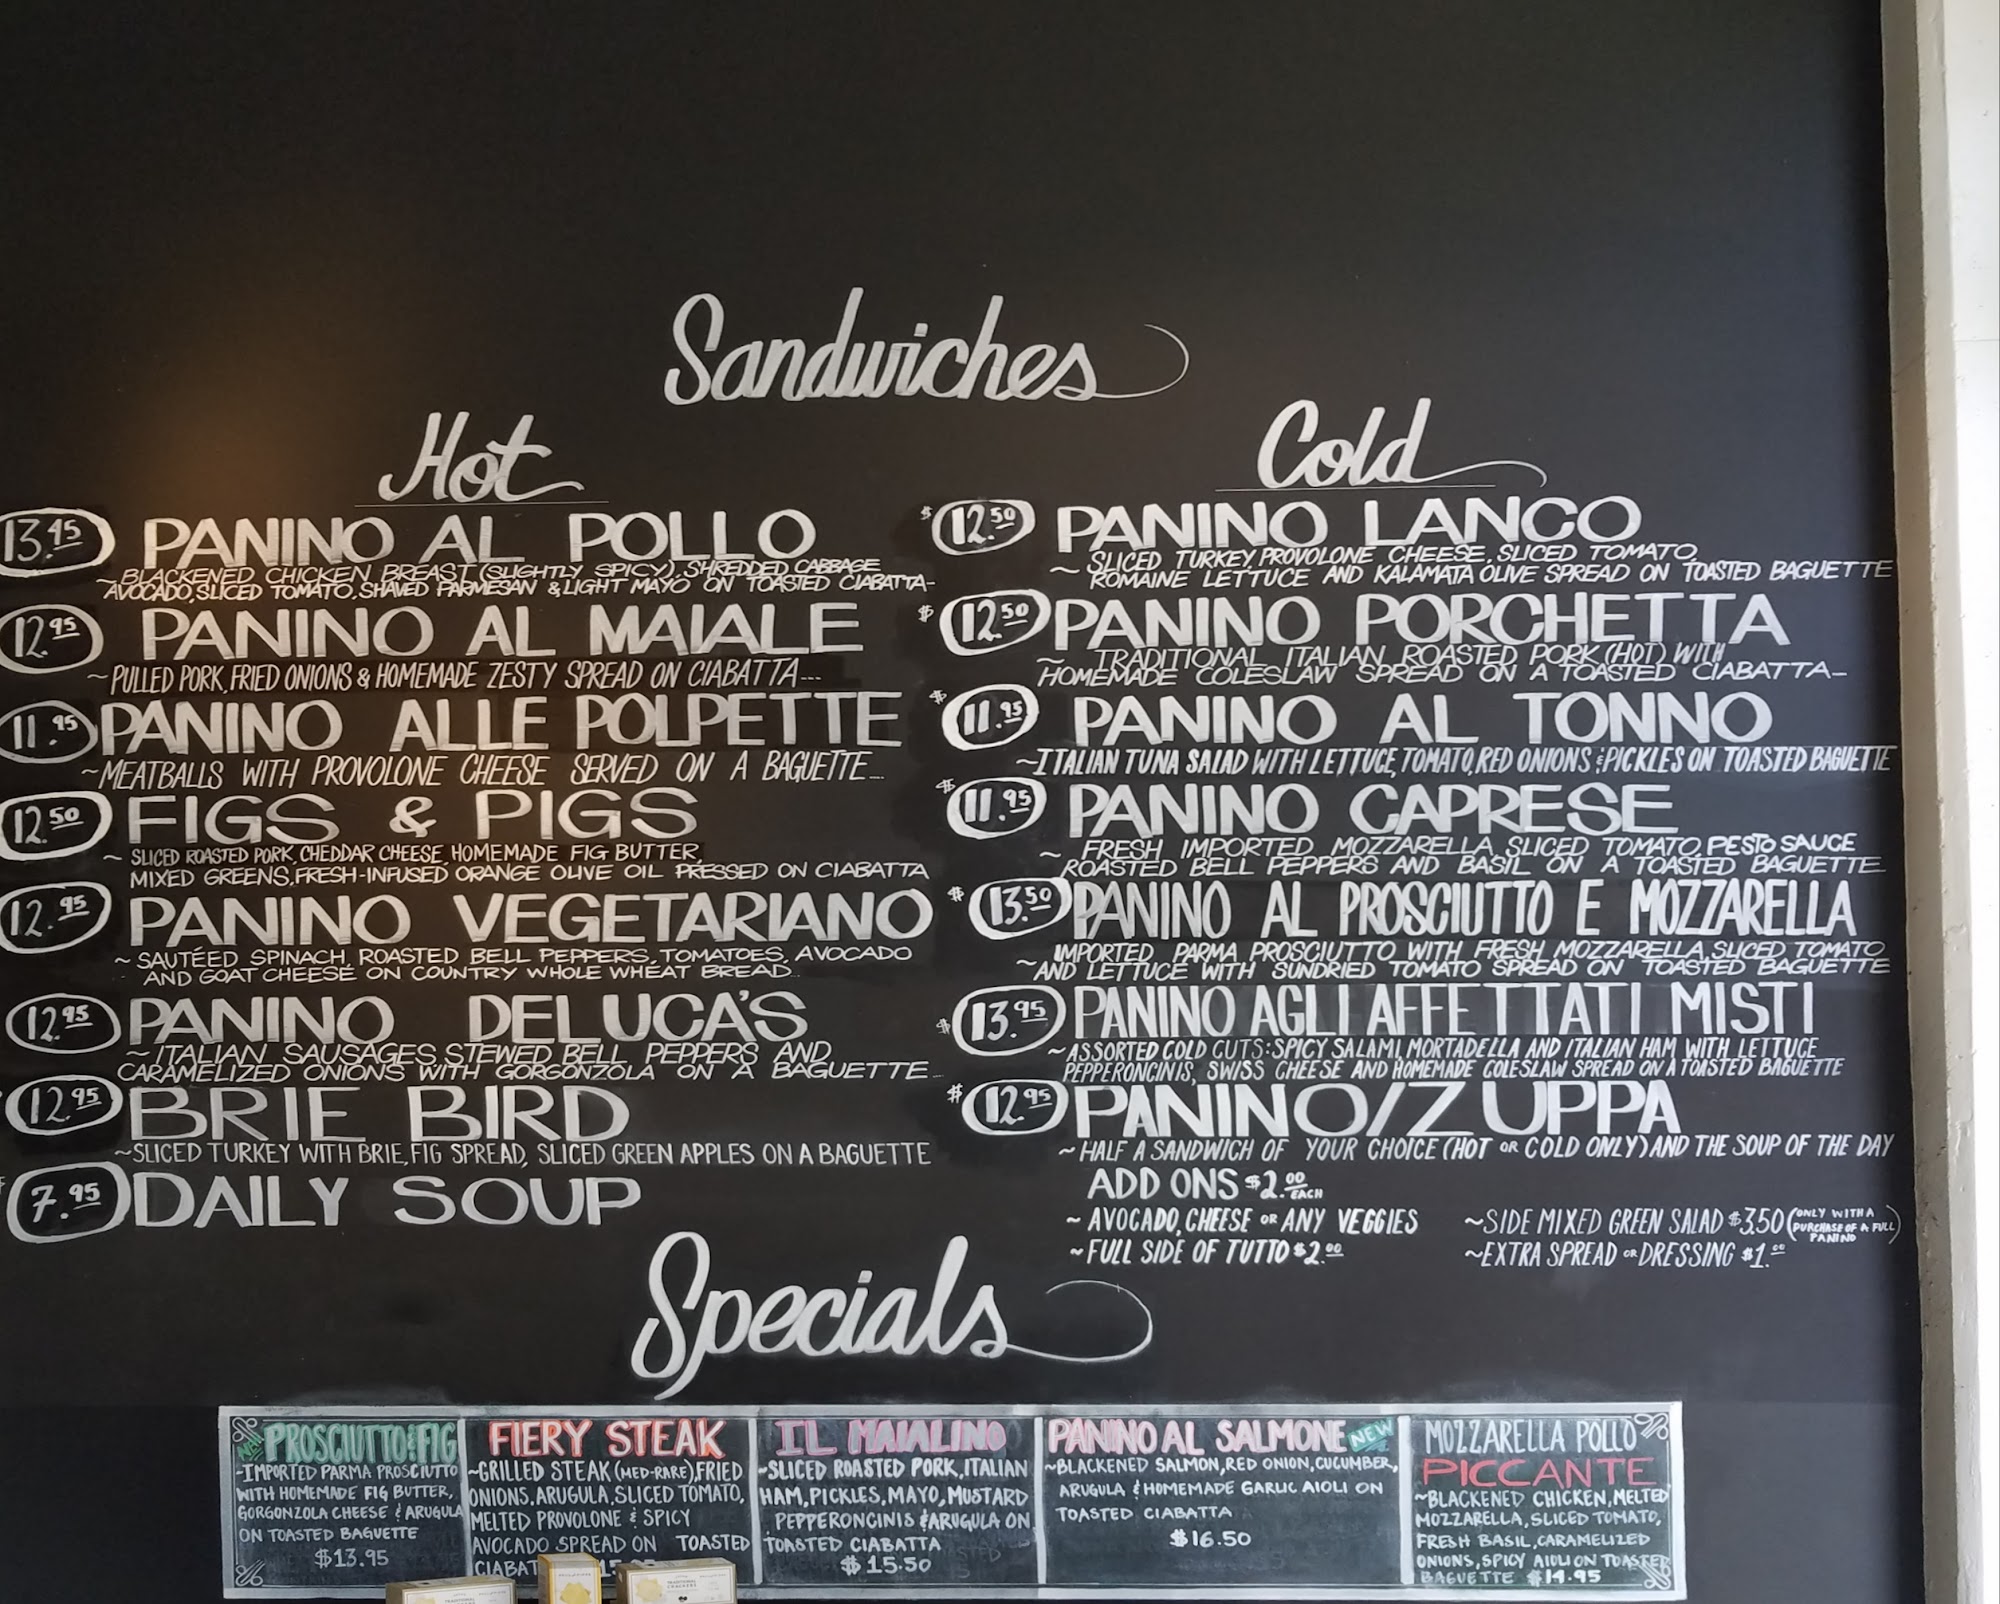 Sandwiches
Hot
13.45 PANINO AL POLLO
~ BLACKENED CHICKEN BREAST (SLIGHTLY SPICY), SHREDDED CABBAGE
AVOCADO, SLICED TOMATO, SHAVED PARMESAN & LIGHT MAYO ON TOASTED CIABATTA~
12.95 PANINO AL MAIALE
~ PULLED PORK, FRIED ONIONS & HOMEMADE ZESTY SPREAD ON CIABATTA...
11.95 PANINO ALLE POLPETTE
~MEATBALLS WITH PROVOLONE CHEESE SERVED ON A BAGUETTE....
12.50 FIGS & PIGS
~ SLICED ROASTED PORK, CHEDDAR CHEESE, HOMEMADE FIG BUTTER,
MIXED GREENS, FRESH-INFUSED ORANGE OLIVE OIL PRESSED ON CIABATTA
12.95 PANINO VEGETARIANO
~ SAUTÉED SPINACH, ROASTED BELL PEPPERS, TOMATOES, AVOCADO
AND GOAT CHEESE ON COUNTRY WHOLE WHEAT BREAD...
12.95 PANINO DELUCA'S
~ ITALIAN SAUSAGES, STEWED BELL PEPPERS AND
CARAMELIZED ONIONS WITH GORGONZOLA ON A BAGUETTE...
12.95 BRIE BIRD
~SLICED TURKEY WITH BRIE, FIG SPREAD, SLICED GREEN APPLES ON A BAGUETTE
7.95 DAILY SOUP
Cold
$12.50 PANINO LANCO
~ SLICED TURKEY, PROVOLONE CHEESE, SLICED TOMATO,
ROMAINE LETTUCE AND KALAMATA OLIVE SPREAD ON TOASTED BAGUETTE
$12.50 PANINO PORCHETTA
~ TRADITIONAL ITALIAN ROASTED PORK (HOT) WITH
HOMEMADE COLESLAW SPREAD ON A TOASTED CIABATTA~
$11.95 PANINO AL TONNO
~ITALIAN TUNA SALAD WITH LETTUCE, TOMATO, RED ONIONS & PICKLES ON TOASTED BAGUETTE
$11.95 PANINO CAPRESE
~ FRESH IMPORTED MOZZARELLA, SLICED TOMATO, PESTO SAUCE
ROASTED BELL PEPPERS AND BASIL ON A TOASTED BAGUETTE
$13.50 PANINO AL PROSCIUTTO E MOZZARELLA
~ IMPORTED PARMA PROSCIUTTO WITH FRESH MOZZARELLA, SLICED TOMATO
AND LETTUCE WITH SUNDRIED TOMATO SPREAD ON TOASTED BAGUETTE
$13.95 PANINO AGLI AFFETTATI MISTI
~ ASSORTED COLD CUTS: SPICY SALAMI, MORTADELLA AND ITALIAN HAM WITH LETTUCE
PEPPERONCINIS, SWISS CHEESE AND HOMEMADE COLESLAW SPREAD ON A TOASTED BAGUETTE
$12.95 PANINO/ZUPPA
~ HALF A SANDWICH OF YOUR CHOICE (HOT OR COLD ONLY) AND THE SOUP OF THE DAY
ADD ONS $2.00 EACH
~ AVOCADO, CHEESE OR ANY VEGGIES
~ FULL SIDE OF TUTTO $2.00
~SIDE MIXED GREEN SALAD $3.50 (ONLY WITH A PURCHASE OF A FULL PANINO)
~EXTRA SPREAD OR DRESSING $1.00
Specials
PROSCIUTTO & FIG
~IMPORTED PARMA PROSCIUTTO
WITH HOMEMADE FIG BUTTER,
GORGONZOLA CHEESE & ARUGULA
ON TOASTED BAGUETTE
$13.95
FIERY STEAK
~GRILLED STEAK (MED-RARE), FRIED
ONIONS, ARUGULA, SLICED TOMATO,
MELTED PROVOLONE & SPICY
AVOCADO SPREAD ON TOASTED
IL MAIALINO
~SLICED ROASTED PORK, ITALIAN
HAM, PICKLES, MAYO, MUSTARD
PEPPERONCINIS & ARUGULA ON
TOASTED CIABATTA
$15.50
PANINO AL SALMONE NEW
~BLACKENED SALMON, RED ONION, CUCUMBER,
ARUGULA & HOMEMADE GARLIC AIOLI ON
TOASTED CIABATTA
$16.50
MOZZARELLA POLLO
PICCANTE
~BLACKENED CHICKEN, MELTED
MOZZARELLA, SLICED TOMATO,
FRESH BASIL, CARAMELIZED
ONIONS, SPICY AIOLI ON TOASTED
BAGUETTE $14.95
TRADITIONAL
CRACKERS